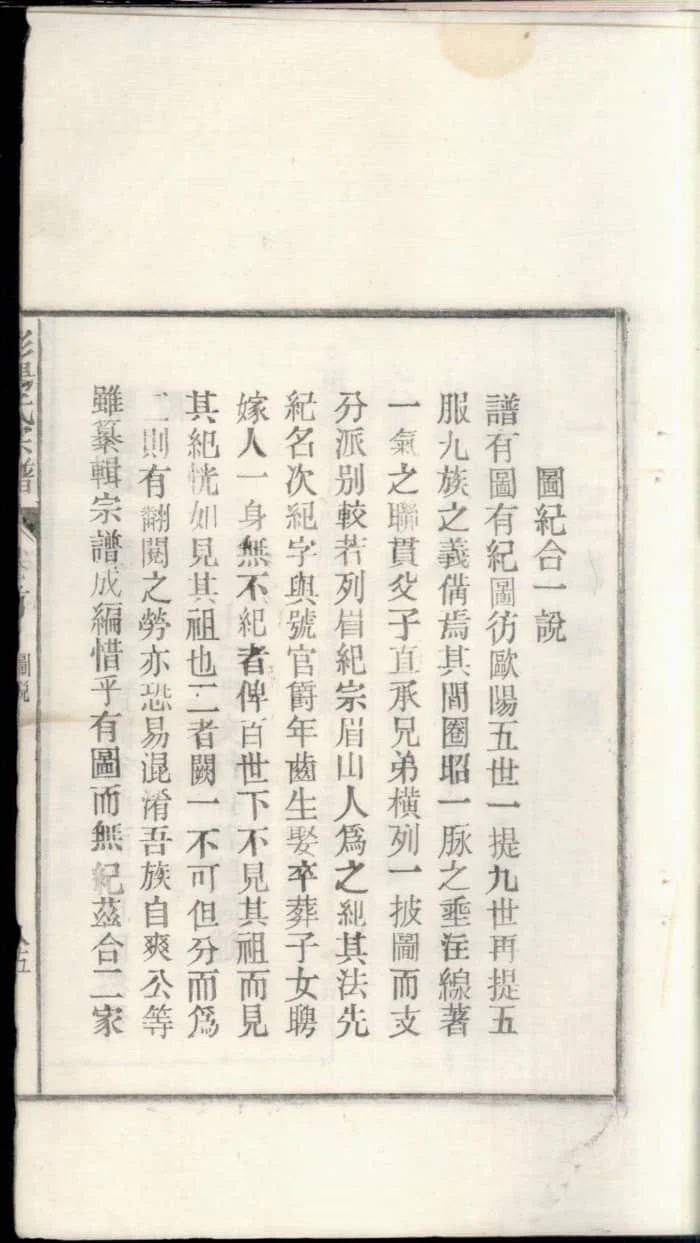 圖紀合一說
譜有圖有紀圖彷歐陽五世一提九世再提五
服九族之義備焉其間圈昭一脉之垂注線著
一氣之聯貫父子直承兄弟橫列一披圖而支
分派別較若列眉紀宗眉山人爲之紀其法先
紀名次紀字與號官爵年齒生娶卒葬子女聘
嫁人一身無不紀者俾百世下不見其祖而見
其紀恍如見其祖也二者闕一不可但分而爲
二則有翻閱之勞亦恐易混淆吾族自爽公等
雖纂輯宗譜成編惜乎有圖而無紀茲合二家
氏宗譜
圖說
五